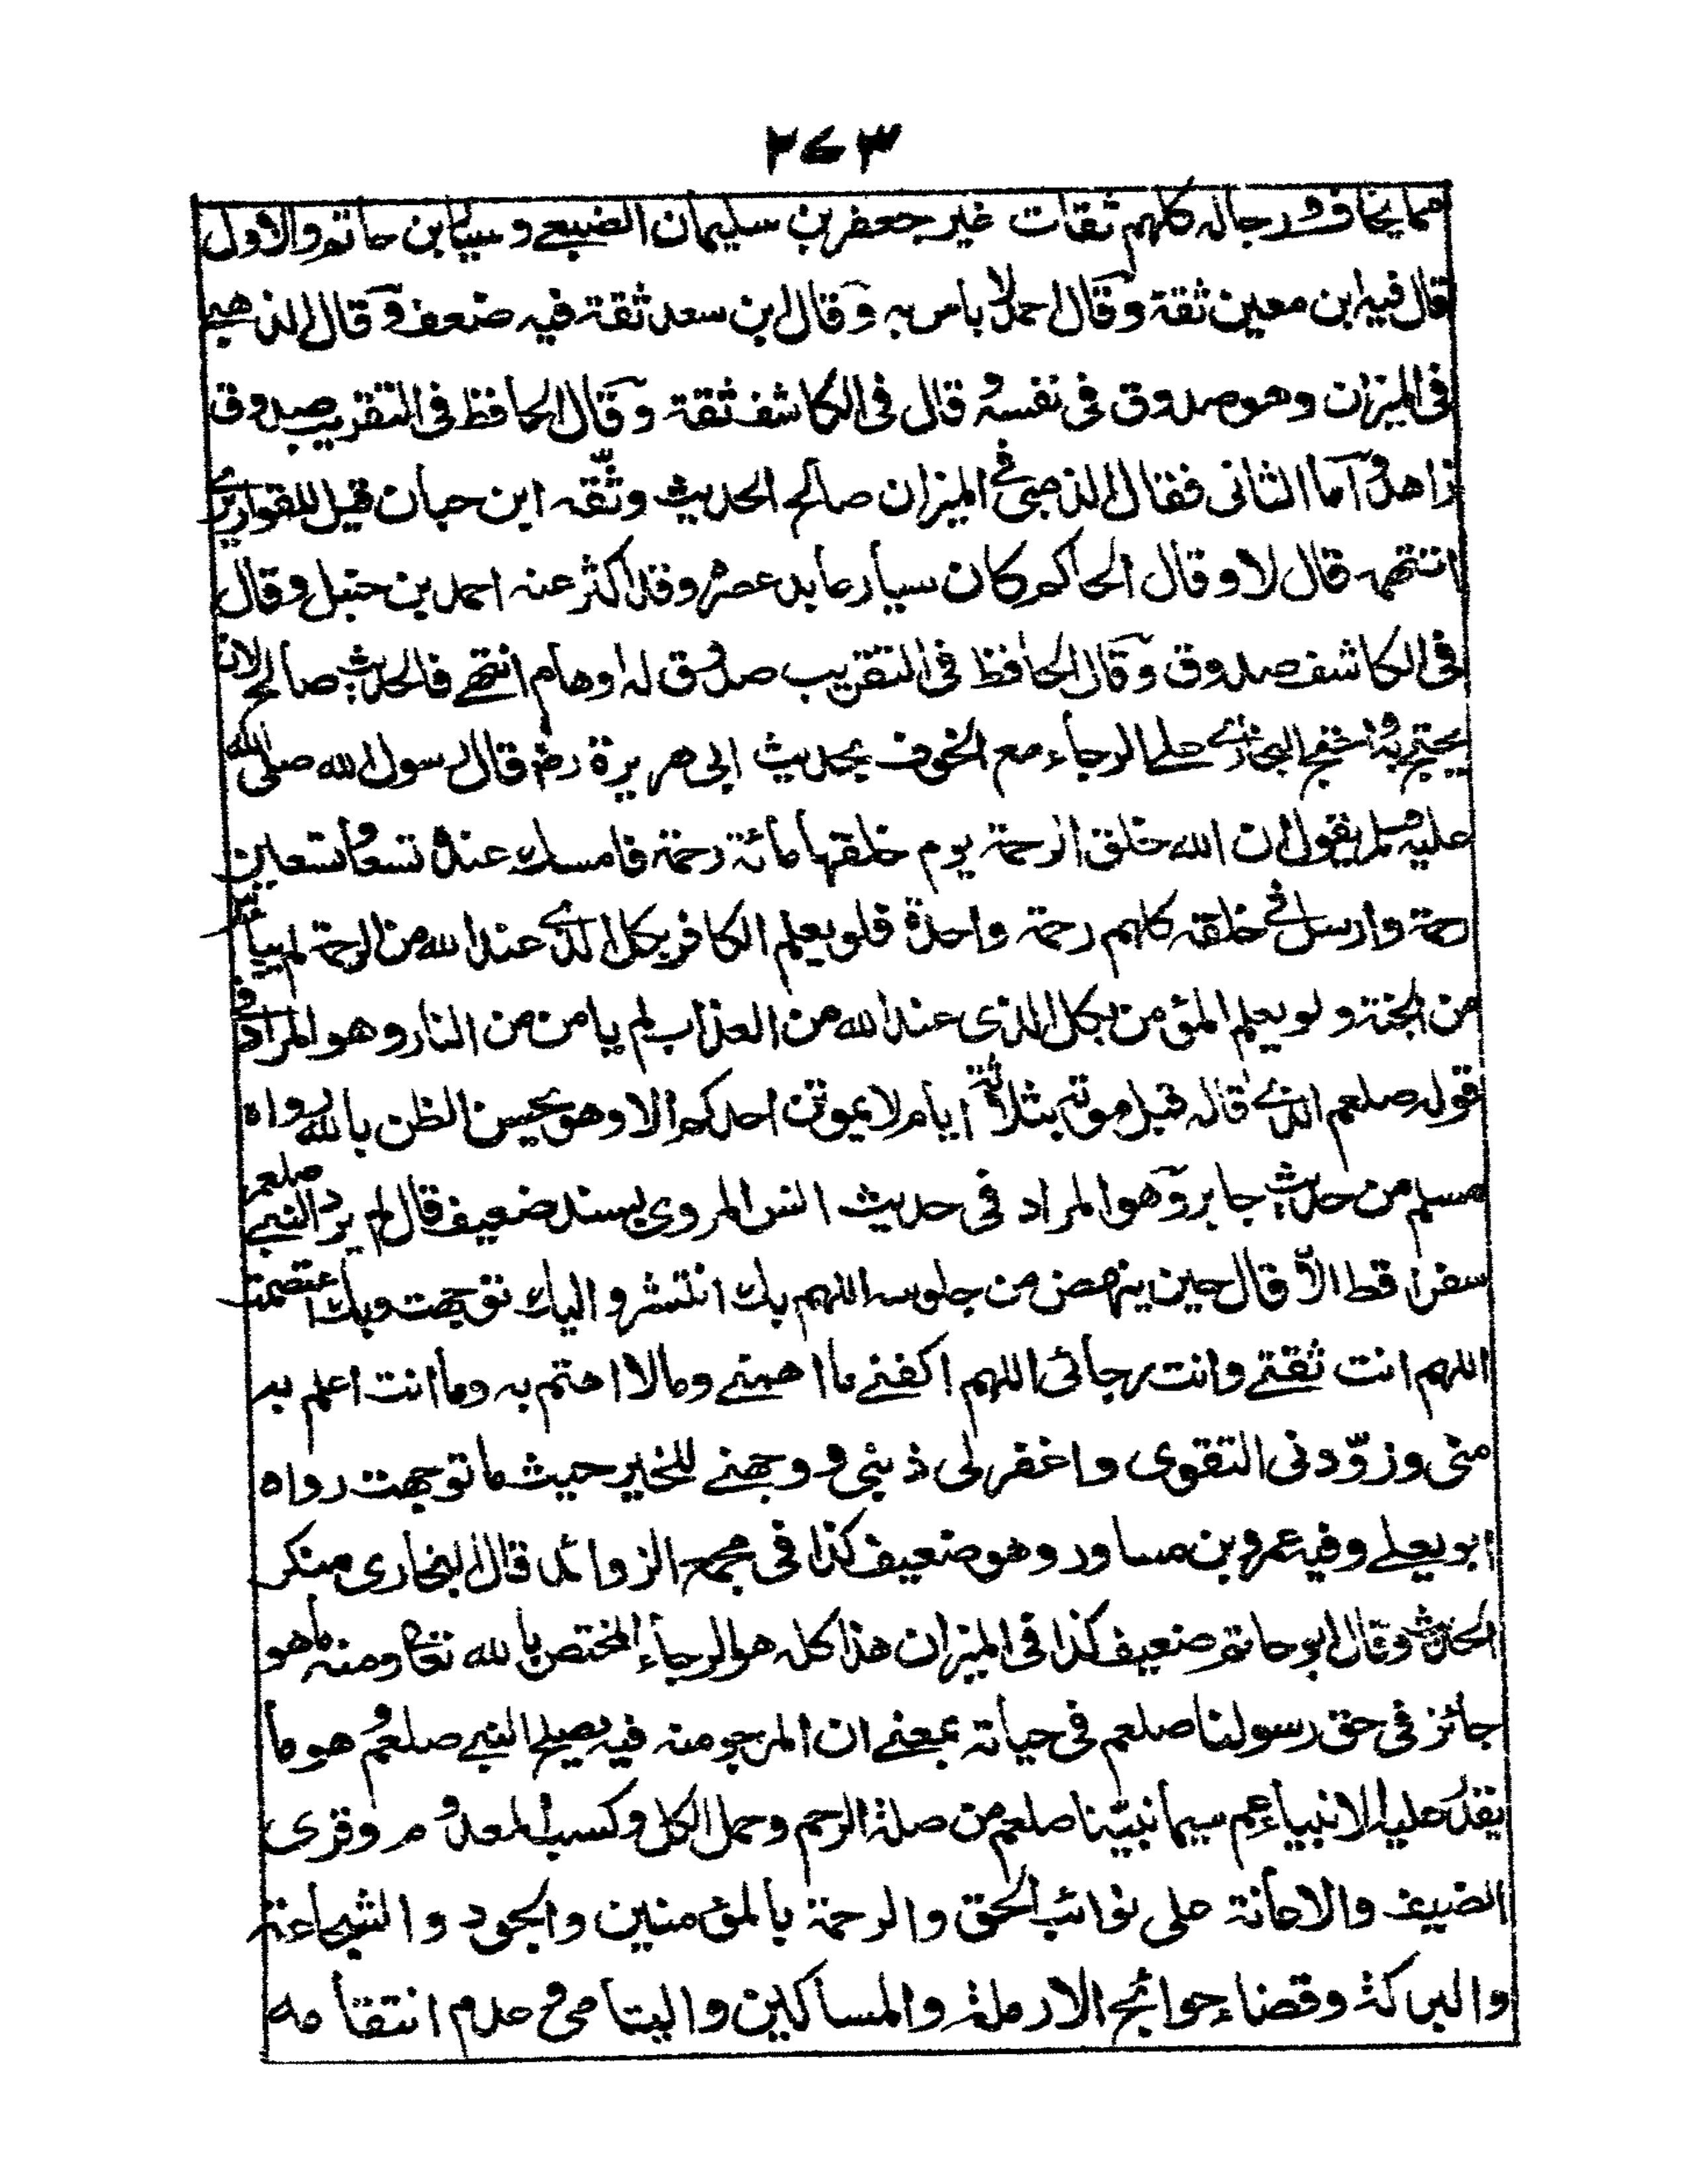 ٢٧٣
مما يخاف ورجاله كلهم ثقات غير جعفر بن سليمان الضبعي وسيار بن حاتم والاول
قال فيه ابن معين ثقة وقال احمد لا باس به وقال ابن سعد ثقة فيه ضعف وقال الذهبي
في الميزان وهو صدوق في نفسه وقال في الكاشف ثقة وقال الحافظ في التقريب صدوق
زاهد واما الثاني فقال الذهبي في الميزان صالح الحديث وثّقه ابن حبان قيل للقواريري
اتتهمه قال لا وقال الحاكم كان سيار عابد عصره وقد اكثر عنه احمد بن حنبل وقال
في الكاشف صدوق وقال الحافظ في التقريب صدوق له اوهام انتهى فالحديث صالح لان
يحتج به واحتج البخاري على الرجاء مع الخوف بحديث ابي هريرة رض قال رسول الله صلى الله
عليه وسلم يقول ان الله خلق الرحمة يوم خلقها مائة رحمة فامسك عنده تسعا وتسعين
رحمة وارسل في خلقه كلهم رحمة واحدة فلو يعلم الكافر بكل الذي عند الله من الرحمة لم ييأس
من الجنة ولو يعلم المؤمن بكل الذي عند الله من العذاب لم يامن من النار وهو المراد في
قوله صلعم الذي قاله قبل موته بثلاثة ايام لا يموتن احدكم الا وهو يحسن الظن بالله رواه
مسلم من حديث جابر وهو المراد في حديث انس المروي بسند ضعيف قال لم يرد النبي صلعم
سفرا قط الاّ قال حين ينهض من جلوسه اللهم بك انتشرو اليك توجهت وبك اعتصمت
اللهم انت ثقتي وانت رجائي اللهم اكفني ما اهمني ومالا اهتم به وما انت اعلم به
مني وزوّدني التقوى واغفر لي ذنبي ووجهني للخير حيث ما توجهت رواه
ابو يعلى وفيه عمرو بن مساور وهو ضعيف كذا في مجمع الزوائد قال البخاري منكر
الحديث وقال ابو حاتم ضعيف كذا في الميزان هذا كله هو الرجاء المختص بالله تعا ومنه ما هو
جائز في حق رسولنا صلعم في حياته بمعنى ان المرجو منه فيه يصلح النبي صلعم وهو ما
يقدر عليه الانبياء عم سيما نبيّنا صلعم من صلة الرحم وحمل الكل وكسب المعدوم وقرى
الضيف والاعانة على نوائب الحق والرحمة بالمؤمنين والجود والشجاعة
والبركة وقضاء حوائج الارملة والمساكين واليتامى وعدم انتقامه